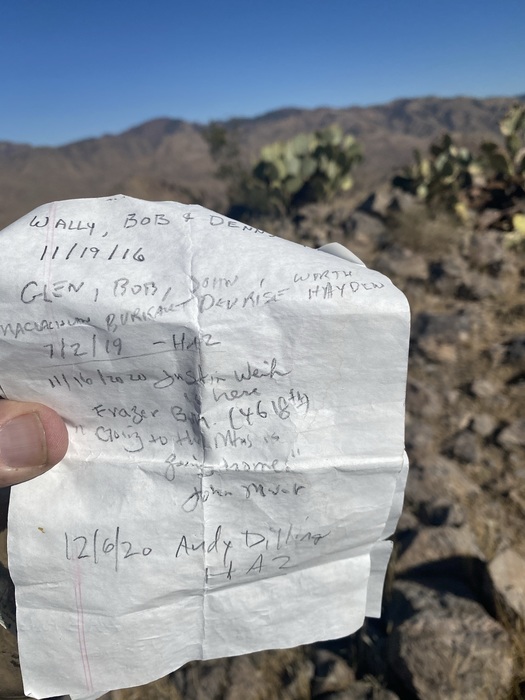 WALLY, BOB & DENN
11/19/16
GLEN, BOB, JOHN, WORTH
BURKART DEVRIES HAYDEN
7/2/19 - HAZ
11/16/2020 Justin
here
Frazer B.M. (4618th)
"Going to the Mtns is
going home."
John Muir
12/6/20 Andy Dilling
HAZ